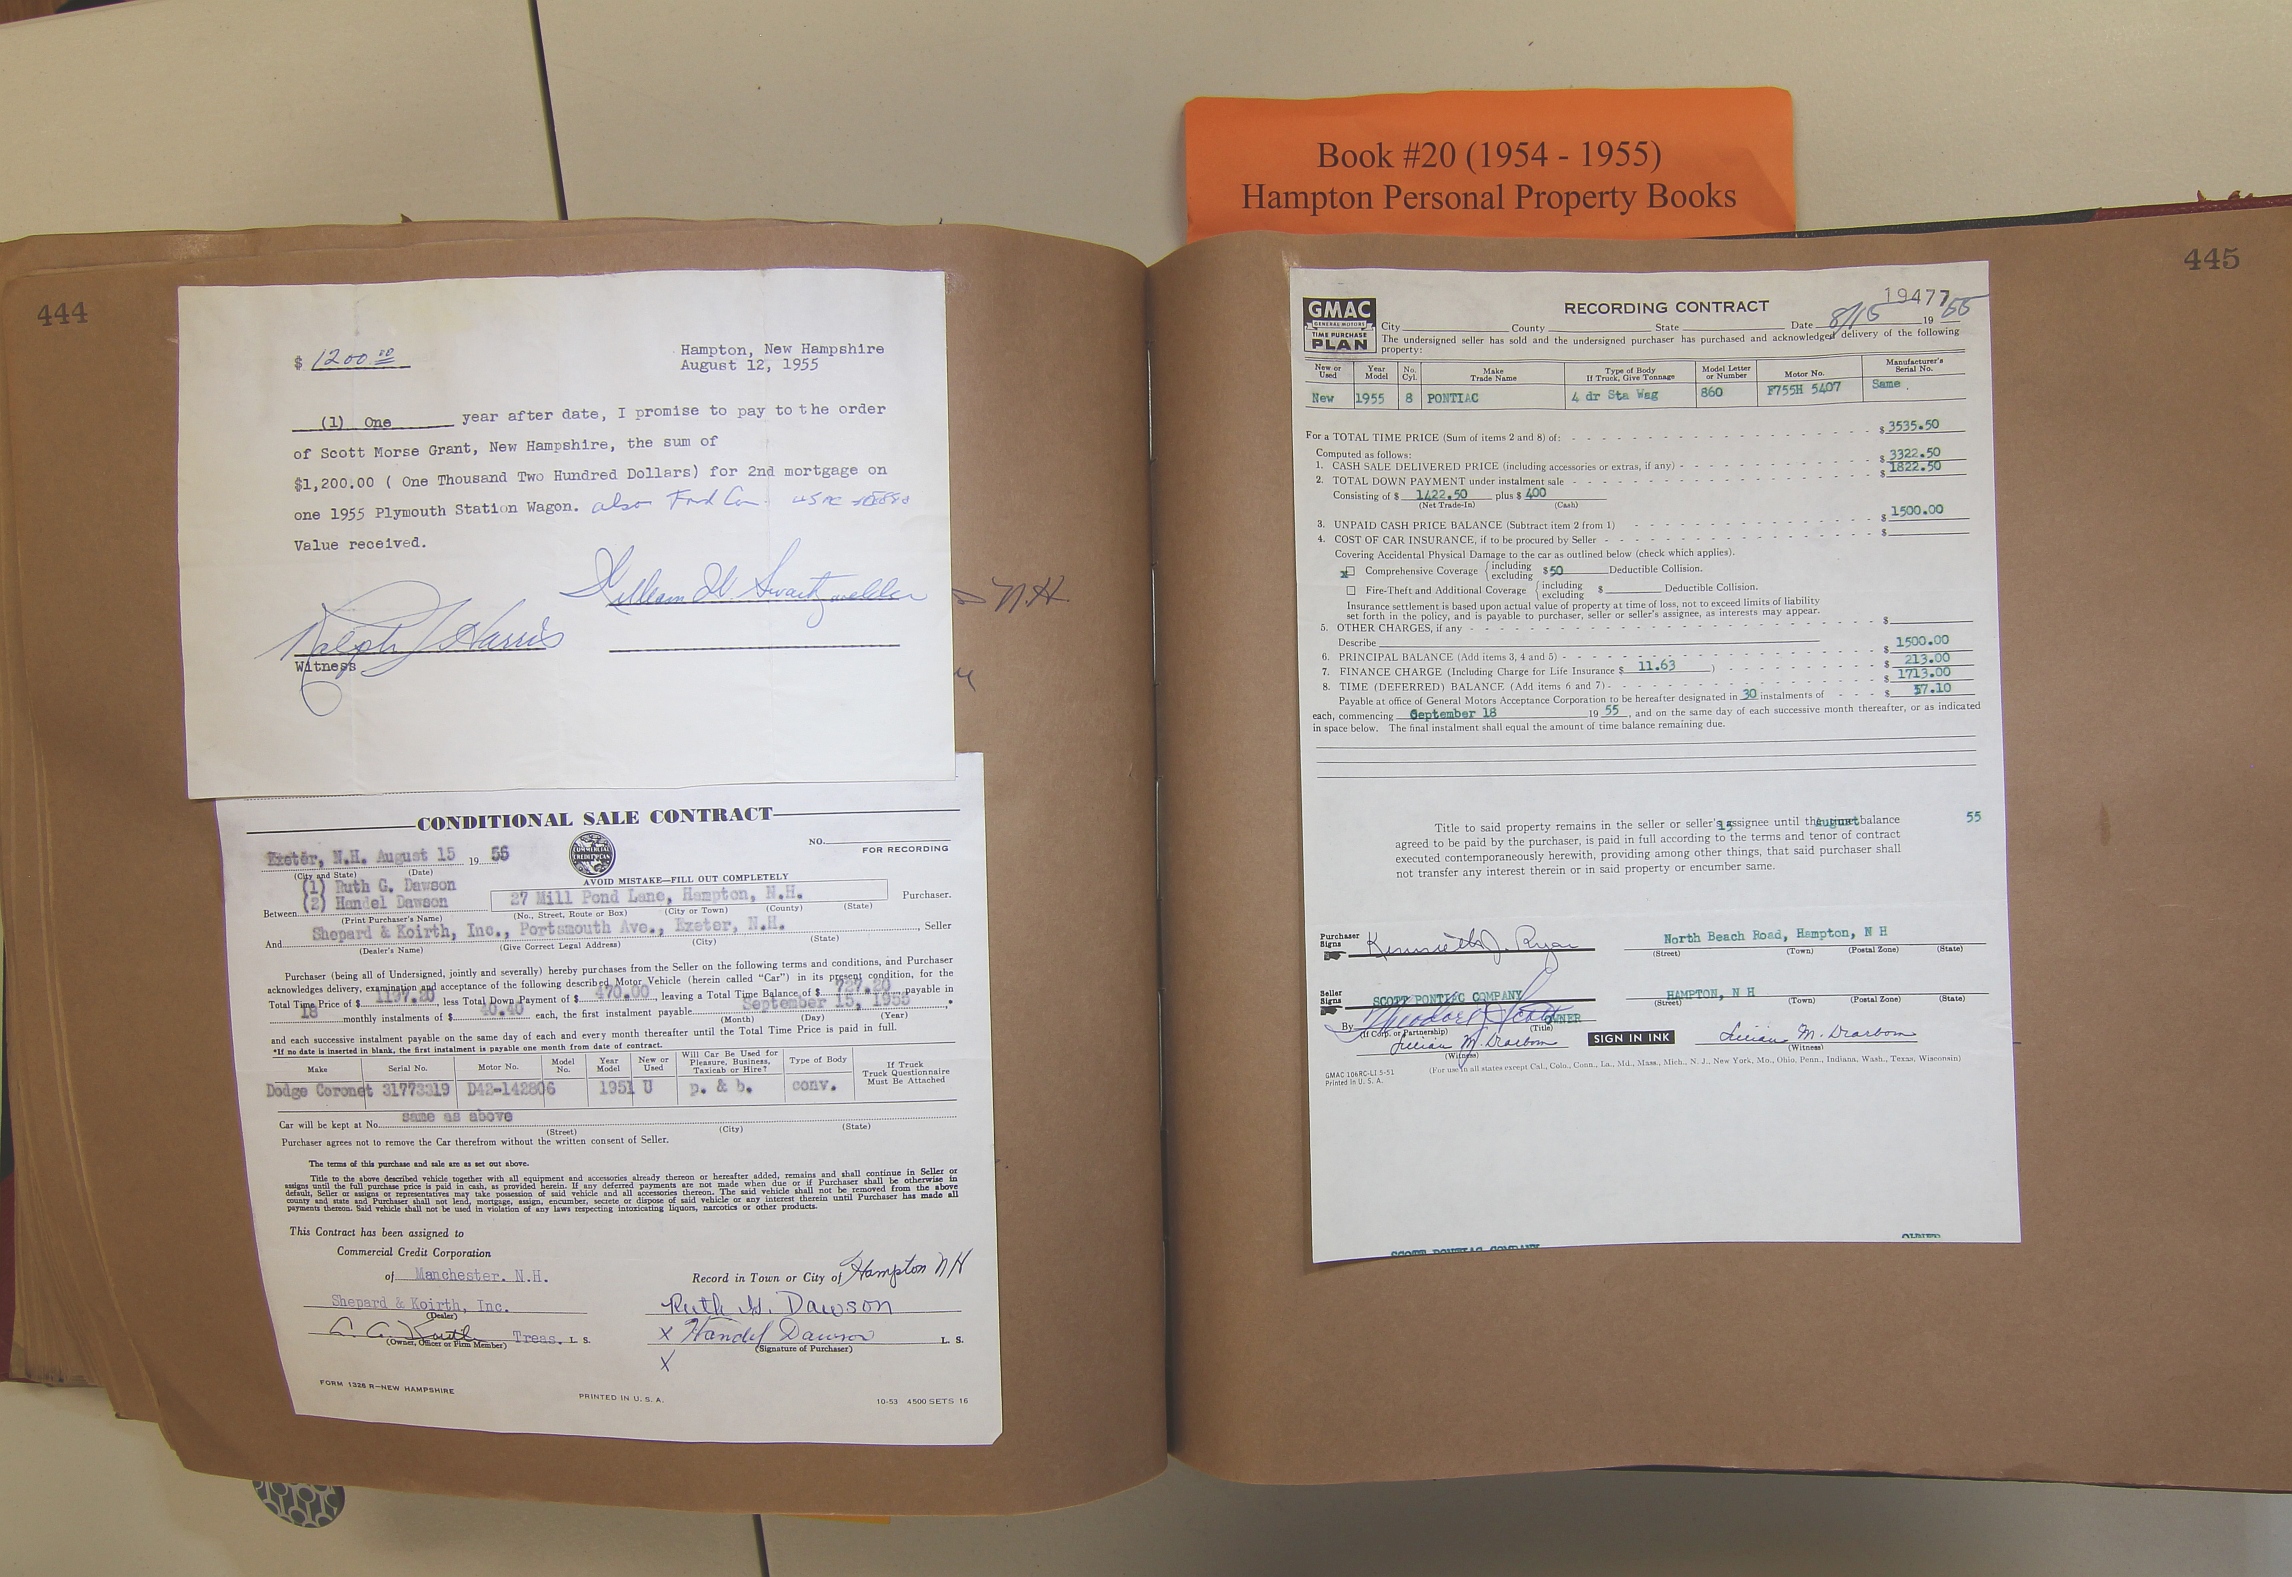 Book #20 (1954 - 1955)
Hampton Personal Property Books
444
$ 1200.00
Hampton, New Hampshire
August 12, 1955
(1) One year after date, I promise to pay to the order
of Scott Morse Grant, New Hampshire, the sum of
$1,200.00 ( One Thousand Two Hundred Dollars) for 2nd mortgage on
one 1955 Plymouth Station Wagon. also Ford
Value received.
William W. Swartzwelder
N.H.
Ralph J Harris
Witness
CONDITIONAL SALE CONTRACT
NO.
FOR RECORDING
Exeter, N.H. August 15 19 55
(City and State) (Date)
COMMERCIAL CREDIT PLAN
AVOID MISTAKE—FILL OUT COMPLETELY
(1) Ruth G. Dawson
(2) Handel Dawson
27 Mill Pond Lane, Hampton, N.H.
Purchaser.
Between
(Print Purchaser's Name) (No., Street, Route or Box) (City or Town) (County) (State)
And Shepard & Koirth, Inc., Portsmouth Ave., Exeter, N.H. , Seller
(Dealer's Name) (Give Correct Legal Address) (City) (State)
Purchaser (being all of Undersigned, jointly and severally) hereby purchases from the Seller on the following terms and conditions, and Purchaser
acknowledges delivery, examination and acceptance of the following described Motor Vehicle (herein called "Car") in its present condition, for the
Total Time Price of $ 1197.20 , less Total Down Payment of $ 470.00 , leaving a Total Time Balance of $ 727.20 payable in
18 monthly instalments of $ 40.40 each, the first instalment payable September 15, 1955 .*
(Month) (Day) (Year)
and each successive instalment payable on the same day of each and every month thereafter until the Total Time Price is paid in full.
*If no date is inserted in blank, the first instalment is payable one month from date of contract.
Make Serial No. Motor No. Model No. Year Model New or Used Will Car Be Used for Pleasure, Business, Taxicab or Hire? Type of Body If Truck Truck Questionnaire Must Be Attached
Dodge Coronet 31773319 D42-142806 1951 U p. & b. conv.
Car will be kept at No. same as above
(Street) (City) (State)
Purchaser agrees not to remove the Car therefrom without the written consent of Seller.
The terms of this purchase and sale are as set out above.
Title to the above described vehicle together with all equipment and accessories already thereon or hereafter added, remains and shall continue in Seller or
assigns until the full purchase price is paid in cash, as provided herein. If any deferred payments are not made when due or if Purchaser shall be otherwise in
default, Seller or assigns or representatives may take possession of said vehicle and all accessories thereon. The said vehicle shall not be removed from the above
county and state and Purchaser shall not lend, mortgage, assign, encumber, secrete or dispose of said vehicle or any interest therein until Purchaser has made all
payments thereon. Said vehicle shall not be used in violation of any laws respecting intoxicating liquors, narcotics or other products.
This Contract has been assigned to
Commercial Credit Corporation
of Manchester. N.H.
Record in Town or City of Hampton NH
Shepard & Koirth, Inc.
(Dealer)
Ruth G. Dawson
Treas. L. S.
(Owner, Officer or Firm Member)
X Handel Dawson L. S.
(Signature of Purchaser)
X
FORM 1326 R—NEW HAMPSHIRE
PRINTED IN U. S. A.
10-53 4500 SETS 16
445
GMAC
GENERAL MOTORS
TIME PURCHASE
PLAN
RECORDING CONTRACT
19477
City County State Date 8/15 19 55
The undersigned seller has sold and the undersigned purchaser has purchased and acknowledged delivery of the following
property:
New or Used Year Model No. Cyl. Make Trade Name Type of Body If Truck, Give Tonnage Model Letter or Number Motor No. Manufacturer's Serial No.
New 1955 8 PONTIAC 4 dr Sta Wag 860 F755H 5407 Same .
For a TOTAL TIME PRICE (Sum of items 2 and 8) of: $ 3535.50
Computed as follows:
1. CASH SALE DELIVERED PRICE (including accessories or extras, if any) $ 3322.50
2. TOTAL DOWN PAYMENT under instalment sale $ 1822.50
Consisting of $ 1422.50 plus $ 400
(Net Trade-In) (Cash)
3. UNPAID CASH PRICE BALANCE (Subtract item 2 from 1) $ 1500.00
4. COST OF CAR INSURANCE, if to be procured by Seller $
Covering Accidental Physical Damage to the car as outlined below (check which applies).
x Comprehensive Coverage {including excluding $50 Deductible Collision.
Fire-Theft and Additional Coverage {including excluding $ Deductible Collision.
Insurance settlement is based upon actual value of property at time of loss, not to exceed limits of liability
set forth in the policy, and is payable to purchaser, seller or seller's assignee, as interests may appear.
5. OTHER CHARGES, if any $
Describe
6. PRINCIPAL BALANCE (Add items 3, 4 and 5) $ 1500.00
7. FINANCE CHARGE (Including Charge for Life Insurance $ 11.63 ) $ 213.00
8. TIME (DEFERRED) BALANCE (Add items 6 and 7) $ 1713.00
Payable at office of General Motors Acceptance Corporation to be hereafter designated in 30 instalments of $ 57.10
each, commencing September 18 19 55 , and on the same day of each successive month thereafter, or as indicated
in space below. The final instalment shall equal the amount of time balance remaining due.
Title to said property remains in the seller or seller's assignee until the balance
15 August 55
agreed to be paid by the purchaser, is paid in full according to the terms and tenor of contract
executed contemporaneously herewith, providing among other things, that said purchaser shall
not transfer any interest therein or in said property or encumber same.
Purchaser Signs Kenneth J. Ryan North Beach Road, Hampton, N H
(Street) (Town) (Postal Zone) (State)
Seller Signs SCOTT PONTIAC COMPANY HAMPTON, N H
(Street) (Town) (Postal Zone) (State)
By Theodore J Scott OWNER
(If Corp. or Partnership) (Title)
Lillian M. Dearborn
(Witness)
SIGN IN INK
Lillian M. Dearborn
(Witness)
GMAC 106RC-LI 5-51
Printed in U. S. A.
(For use in all states except Cal., Colo., Conn., La., Md., Mass., Mich., N. J., New York, Mo., Ohio, Penn., Indiana, Wash., Texas, Wisconsin)
SCOTT PONTIAC COMPANY
OWNER